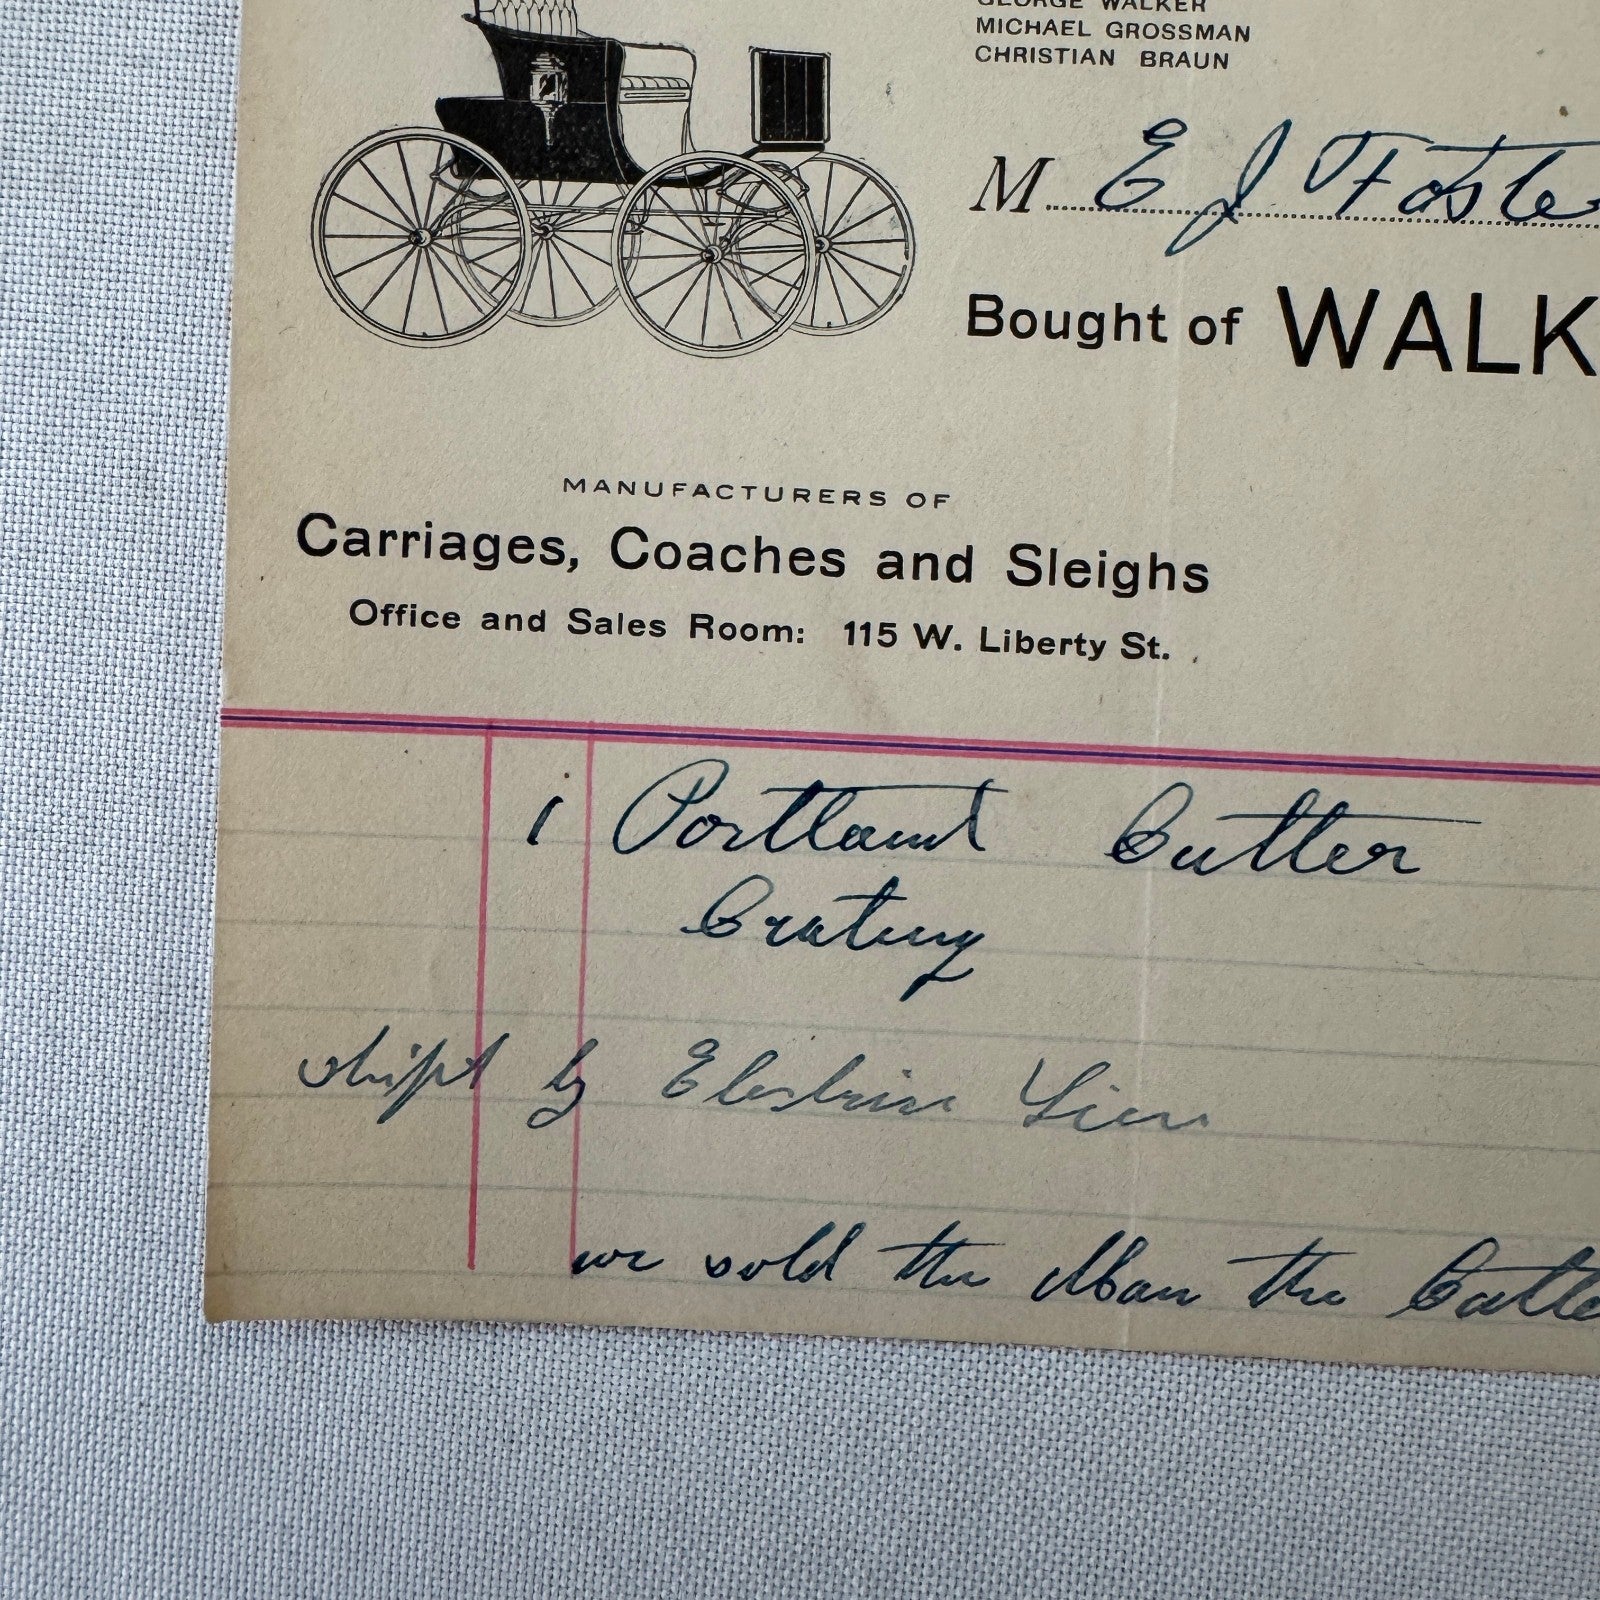 GEORGE WALKER
MICHAEL GROSSMAN
CHRISTIAN BRAUN
M E J Foste
Bought of WALK
MANUFACTURERS OF
Carriages, Coaches and Sleighs
Office and Sales Room: 115 W. Liberty St.
1 Portland Cutter
Crating
shipt by Electric Line
we sold the Man the Cutte